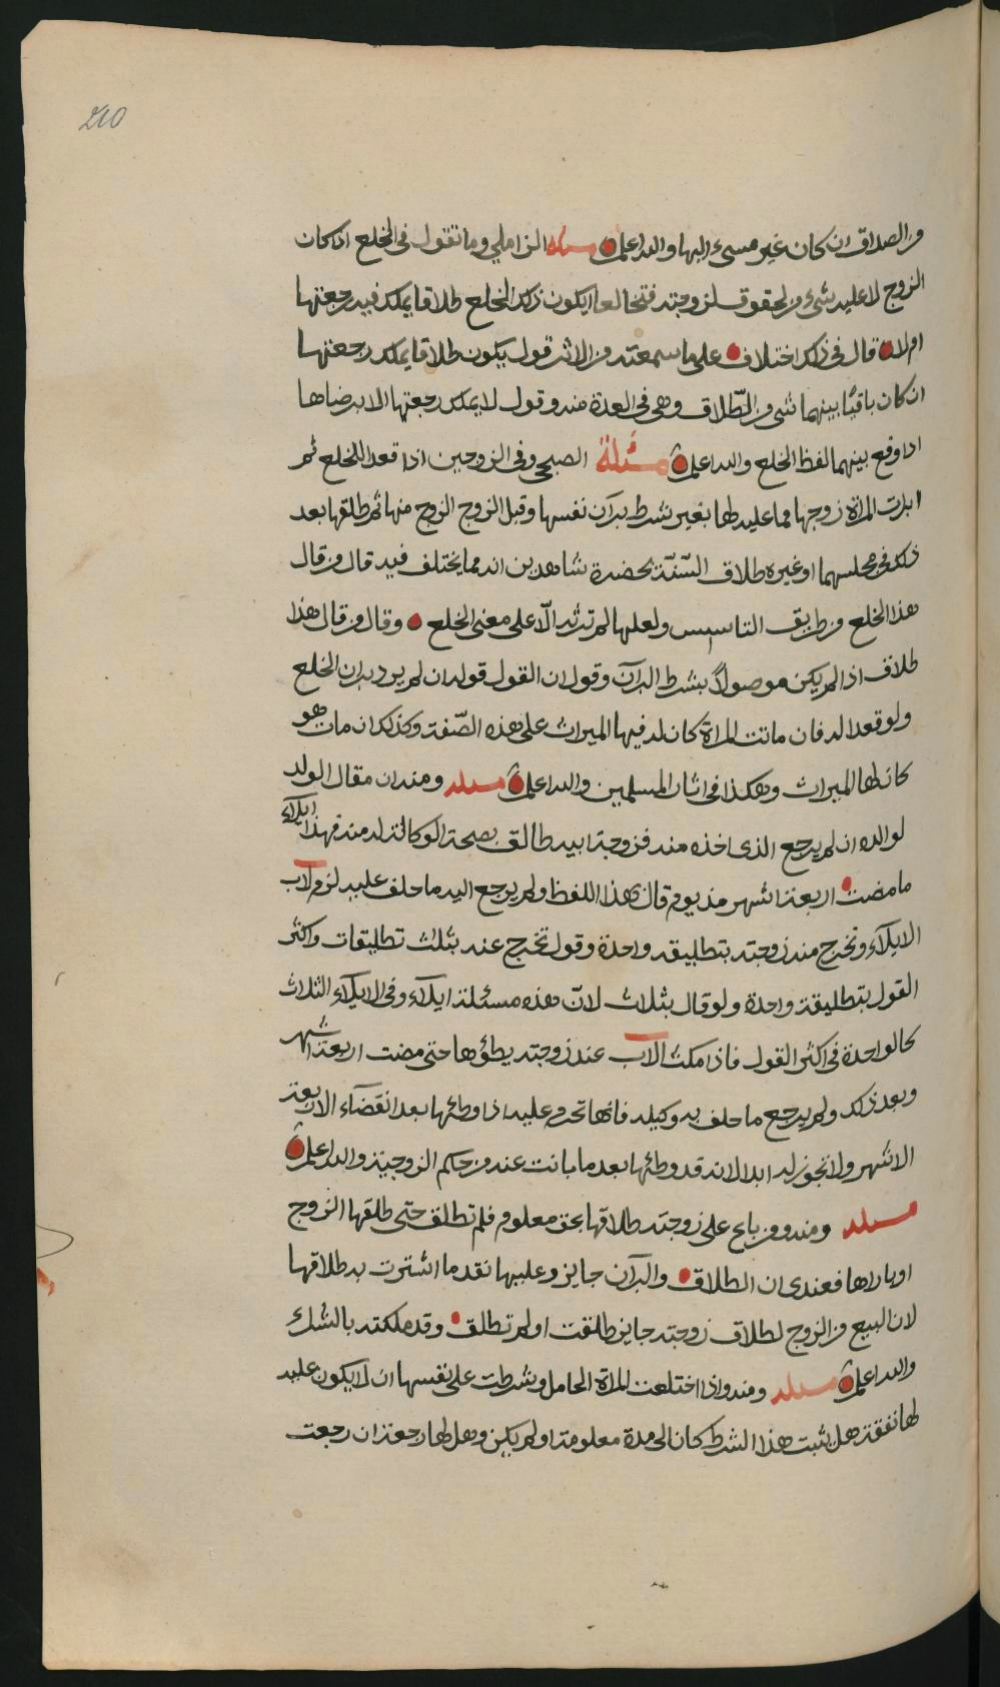 210
من الصداق ان كان غير مسيء اليها والله اعلم مسئله الزاملي وما تقول في الخلع اذا كان
الزوج لا عليه شيء من الحقوق لزوجته فتخالعا ايكون ذلك الخلع طلاقا يملك فيه رجعتها
ام لا قال في ذلك اختلاف على ما سمعته من الاثر قول يكون طلاقا يملك رجعتها
ان كان باقيًا بينهما شي من الطّلاق وهي في العدة منه وقول لا يملك رجعتها الا برضاها
اذا وقع بينهما لفظ الخلع والله اعلم مسئلة الصبحي وفي الزوجين اذا قعدا للخلع ثم
ابرت المراة زوجها مما عليه لها بغير شرط برآن نفسها وقبل الزوج الزوج منها ثم طلقها بعد
ذلك في مجلسهما او غيره طلاق السّنّة بحضرة شاهدين انه مما يختلف فيه قال من قال
هذا الخلع من طريق التاسيس ولعلها لم ترثه الّا على معنى الخلع وقال من قال هذا
طلاق اذا لم يكن موصولاً بشرط البرآن وقول ان القول قوله ان لم يرد برآن الخلع
ولو قعدا له فان ماتت المراة كان له فيها الميراث على هذه الصّفة وكذلك ان مات هو
كان لها الميراث وهكذا في اثار المسلمين والله اعلم مسئله ومنه ان مقال الولد
لوالده ان لم يرجع الذي اخذه منه فزوجة ابيه طالق بصحة الوكالة له منه فهذا ايلآء
ما مضت اربعة اشهر مذ يوم قال هذا اللفظ ولم يرجع اليه ما حلف عليه لزم الاب
الايلآء وتخرج منه زوجته بتطليقه واحدة وقول تخرج عنه بثلث تطليقات واكثر
القول بتطليقة واحدة ولو قال بثلاث لانّ هذه مسئلة ايلآء وفي الايلآء الثلاث
كالواحدة في اكثر القول فاذا مكث الاب عند زوجته يطؤها حتى مضت اربعة اشهر
وبعد ذلك ولم يرجع ما حلف به وكيله فانها تحرم عليه اذا وطئها بعد انقضآء الاربعة
الاشهر ولا تجوز له ابدا لانه قد وطئها بعد ما بانت عنه من حكم الزوجية والله اعلم
مسئله ومنه ومن باع على زوجته طلاقها بحق معلوم فلم تطلق حتى طلقها الزوج
او باراها فعندي ان الطلاق والبرآن جايز وعليها نقد ما اشترت به طلاقها
لان البيع من الزوج لطلاق زوجته جايز طلقت او لم تطلق وقد ملكته بالشرآء
والله اعلم مسئله ومنه واذا اختلعت المراة الحامل وشرطت على نفسها ان لا يكون عليه
لها نفقة هل يثبت هذا الشرط كان الى مدة معلومة او لم يكن وهل لها رجعة ان رجعت